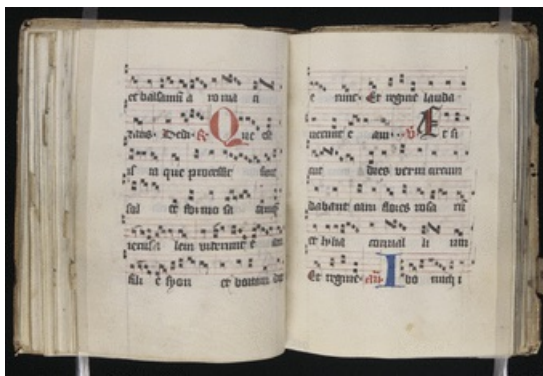 et balsamū a ro ma ti
zans. Dedi. R Que est
is ta que processit sicut
sol et formo sa tamqͣ
iherusa lem viderunt e am
fili e syon et beatam dix
e runt. Et regine lauda
uerunt e am. V Et si
cut dies verni circum
dabant eam flores rosa rū
et lylia conual li um
Et regine. añ. I bo michi